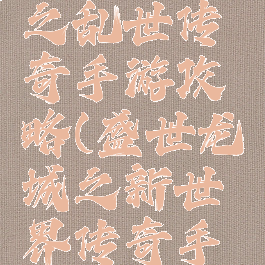 之乱世传
奇手游攻
略(盛世龙
城之新世
界传奇手